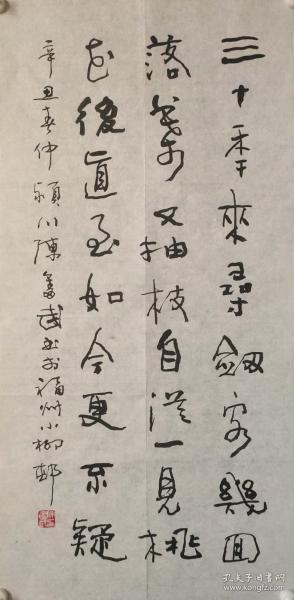 三十年來尋劍客幾回
落葉又抽枝自從一見桃
花後直至如今更不疑
辛丑春仲潁川陳奮武書於福州小柳邨
孔夫子旧书网
www.kongfz.com